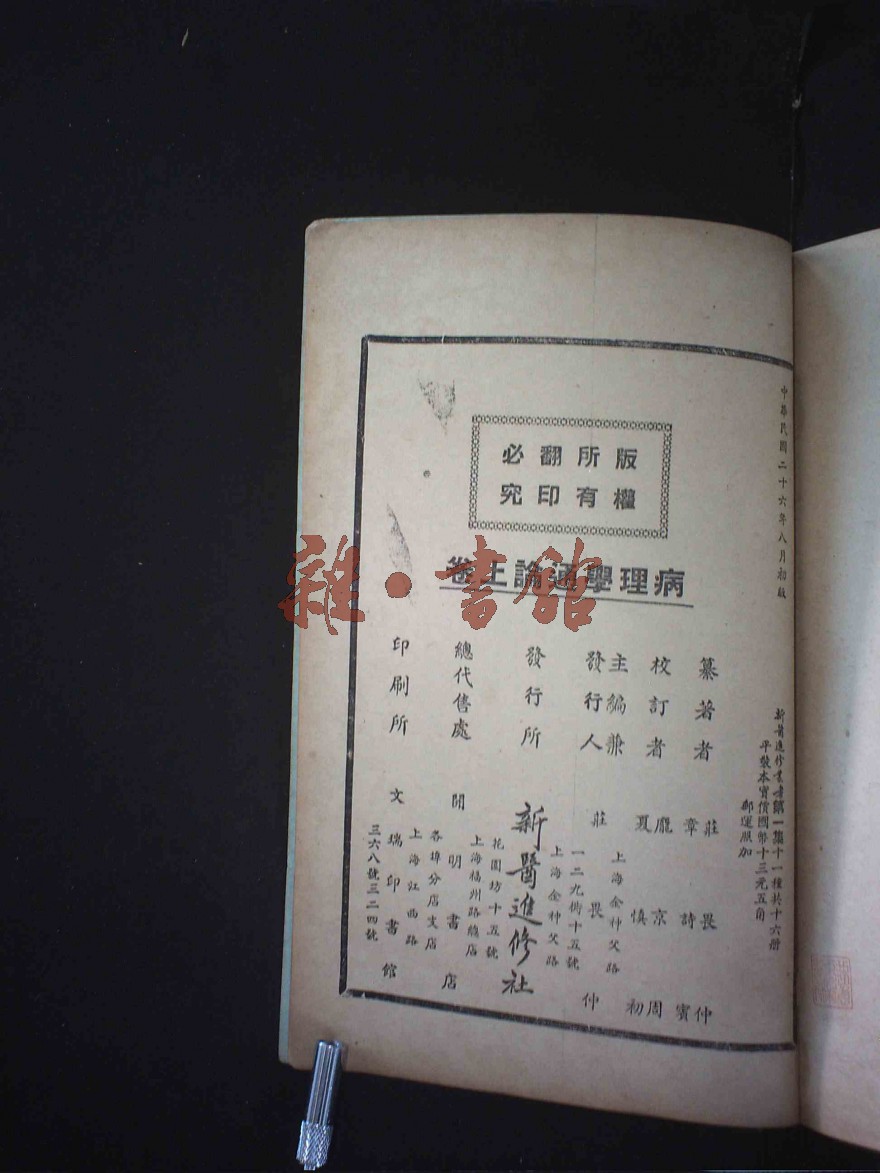 中華民國二十六年八月初版
新醫進修叢書第一集十一種共十六册
平裝本實價國幣十三元五角
郵運照加
版權
所有
翻印
必究
病理學通論上卷
纂著者 莊畏仲
章詩賓
校訂者 龐京周
夏慎初
主編兼
發行人 莊畏仲
上海金神父路
一二九街十五號
發行所 新醫進修社
上海金神父路
花園坊十五號
總代售處 開明書店
上海福州路總店
各埠分店支店
印刷所 文瑞印書館
上海江西路
三六八號三二四號
雜·書館